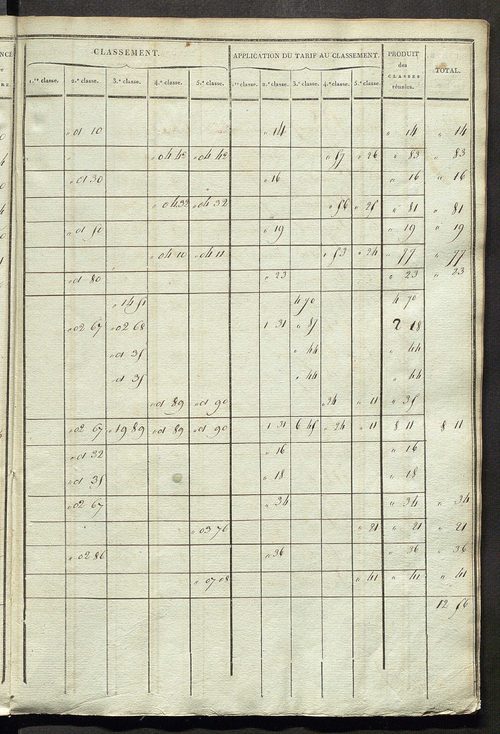 CLASSEMENT. APPLICATION DU TARIF AU CLASSEMENT. PRODUIT des CLASSES réunies. TOTAL.
1.re classe. 2.e classe. 3.e classe. 4.e classe. 5.e classe. 1.re classe. 2.e classe. 3.e classe. 4.e classe. 5.e classe.
" 01 10 " 14 " 14 " 14
" 04 42 " 04 42 " 57 " 26 " 83 " 83
" 01 30 " 16 " 16 " 16
" 04 32 " 04 32 " 56 " 25 " 81 " 81
" 01 50 " 19 " 19 " 19
" 04 10 " 04 11 " 53 " 24 " 77 " 77
" 01 80 " 23 " 23 " 23
" 14 51 4 70 4 70
" 02 67 " 02 68 1 31 " 87 2 18
" 01 35 " 44 " 44
" 01 35 " 44 " 44
" 01 89 " 01 90 " 24 " 11 " 35
" 02 67 " 19 89 " 01 89 " 01 90 1 31 6 45 " 24 " 11 8 11 8 11
" 01 32 " 16 " 16
" 01 51 " 18 " 18
" 02 67 " 34 " 34 " 34
" 03 76 " 21 " 21 " 21
" 02 86 " 36 " 36 " 36
" 07 08 " 41 " 41 " 41
12 56